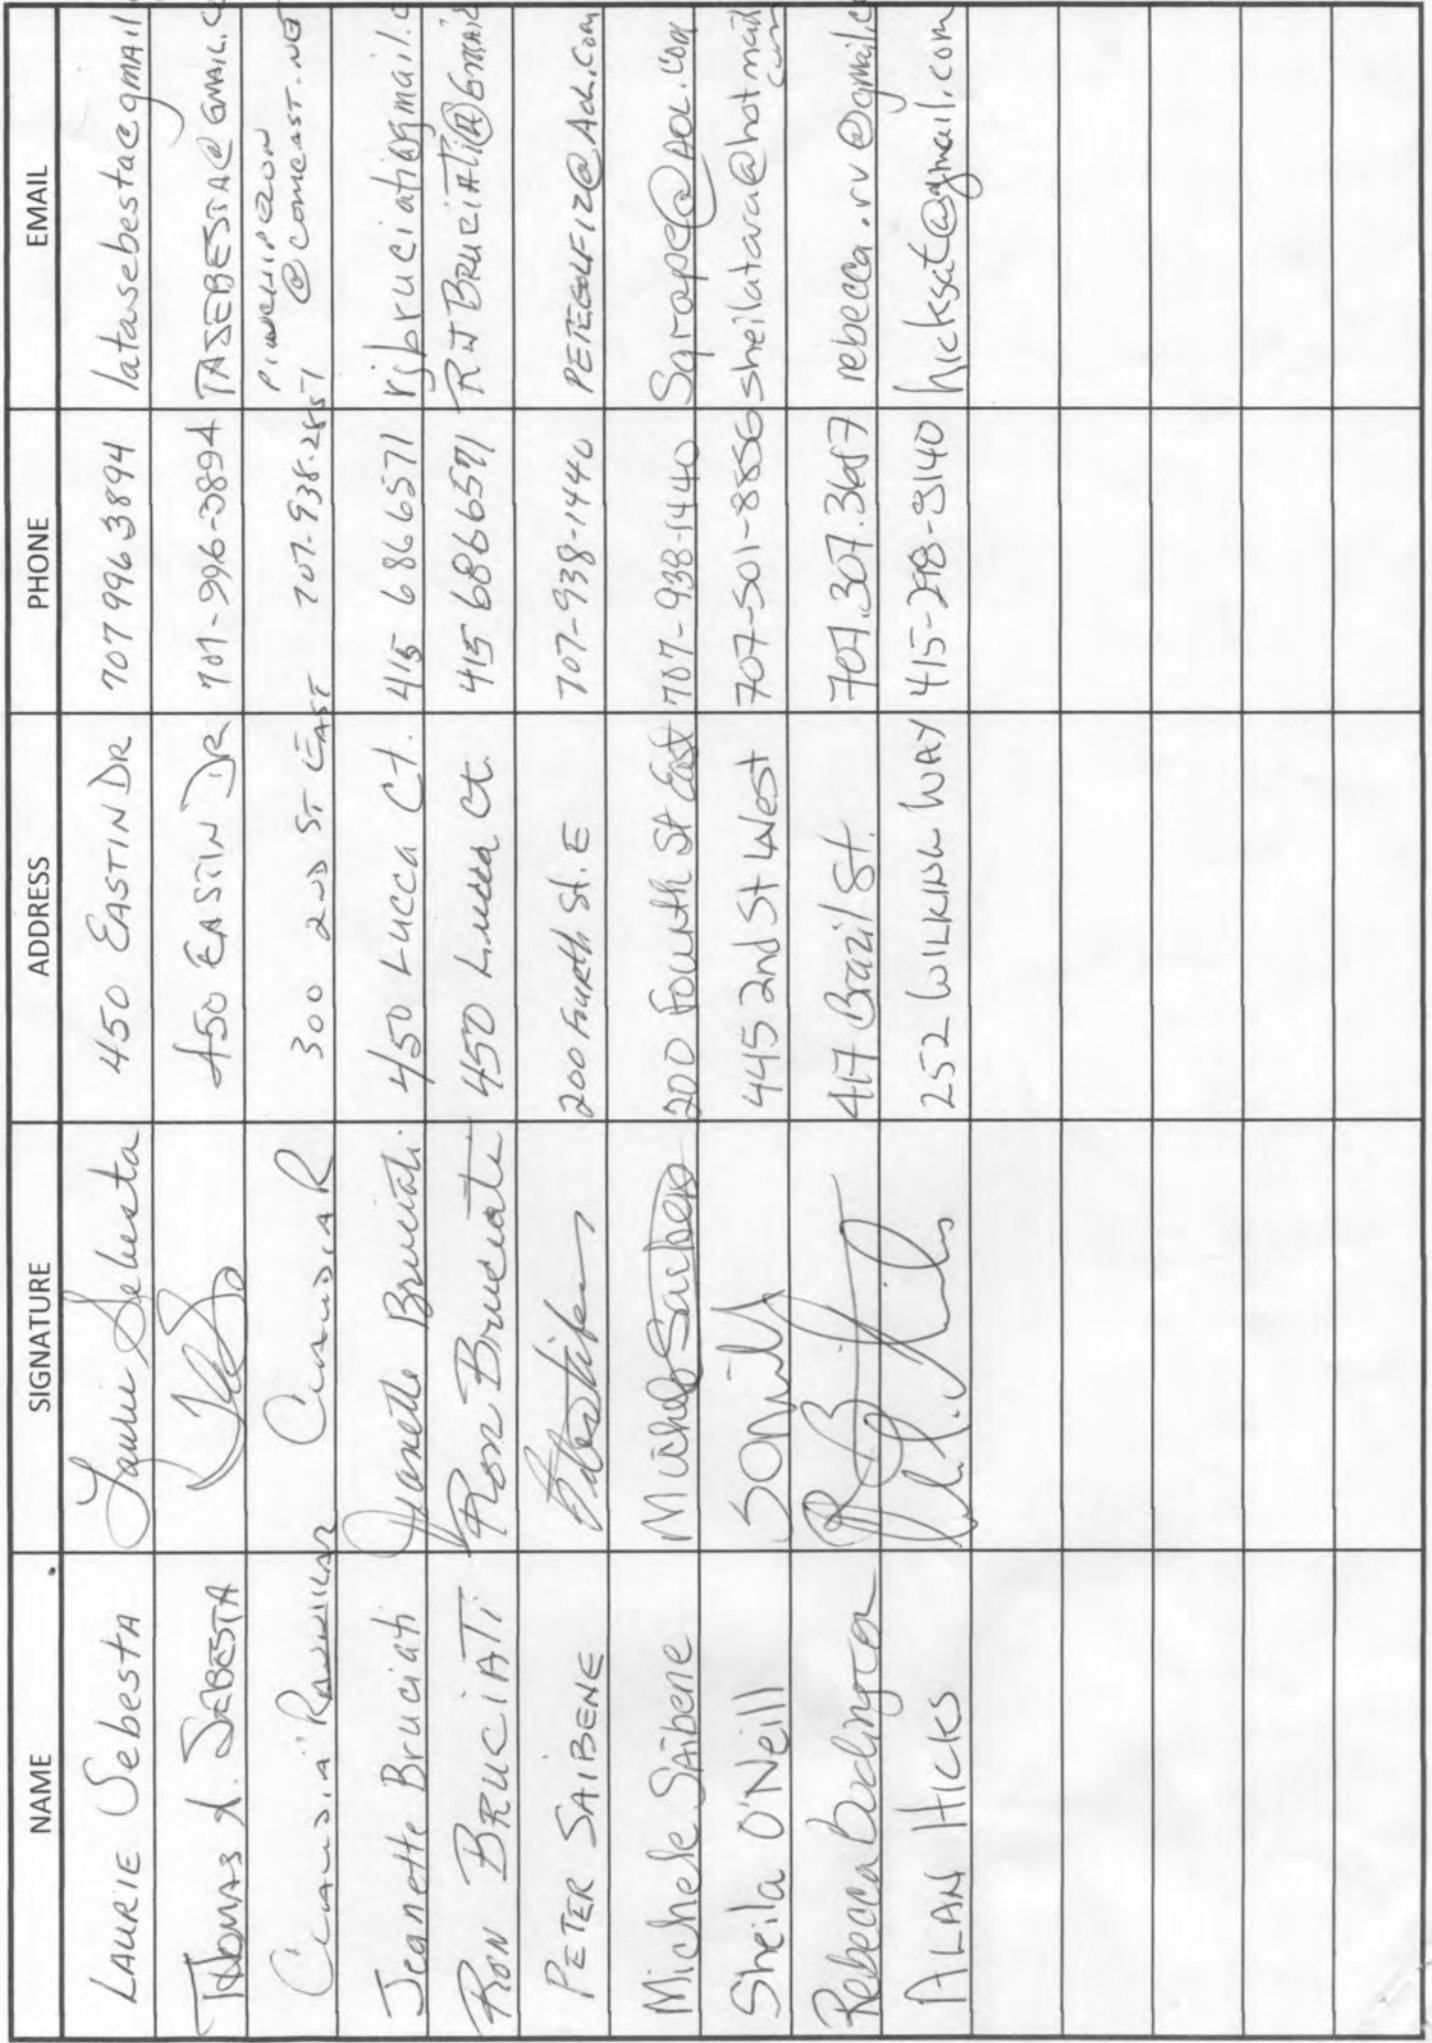 NAME SIGNATURE ADDRESS PHONE EMAIL
LAURIE Sebesta Laurie Sebesta 450 EASTIN DR 707 996 3894 latasebesta@gmail
Thomas A. SEBESTA 450 EASTIN DR 707-996-3894 TASEBESTA@GMAIL.C
Claudia 300 2ND ST EAST 707-938-2851
@comcast.net
Jeanette Bruciati Jeanette Bruciati 450 Lucca Ct. 415 686 6571 rjbruciati@gmail.c
RON BRUCIATI Ron Bruciati 450 Lucca Ct. 415 686 6571 RJBRUCIATI@GMAIL
PETER SAIBENE 200 Fourth St. E 707-938-1440 PETEGOLF12@AOL.COM
Michele Saibene Michele Saibene 200 Fourth St East 707-938-1440 @AOL.COM
Sheila O'Neill 445 2nd St West 707-501-8856 sheilatara@hotmail
com
Rebecca 417 Brazil St. 707.307.3657 rebecca.rv@gmail.c
ALAN HICKS 252 WILKING WAY 415-298-3140 hicksat@gmail.com